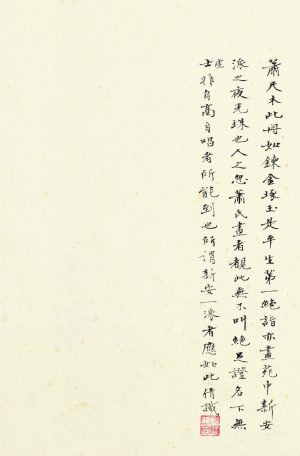 蕭尺木此冊如鍊金琢玉是平生第一絕詣亦畫苑中新安
派之夜光珠也人之忽蕭氏畫者覩此無不叫絕足證名下無
虛士非自高自唱者所能到也所謂新安一派者應如此倩識